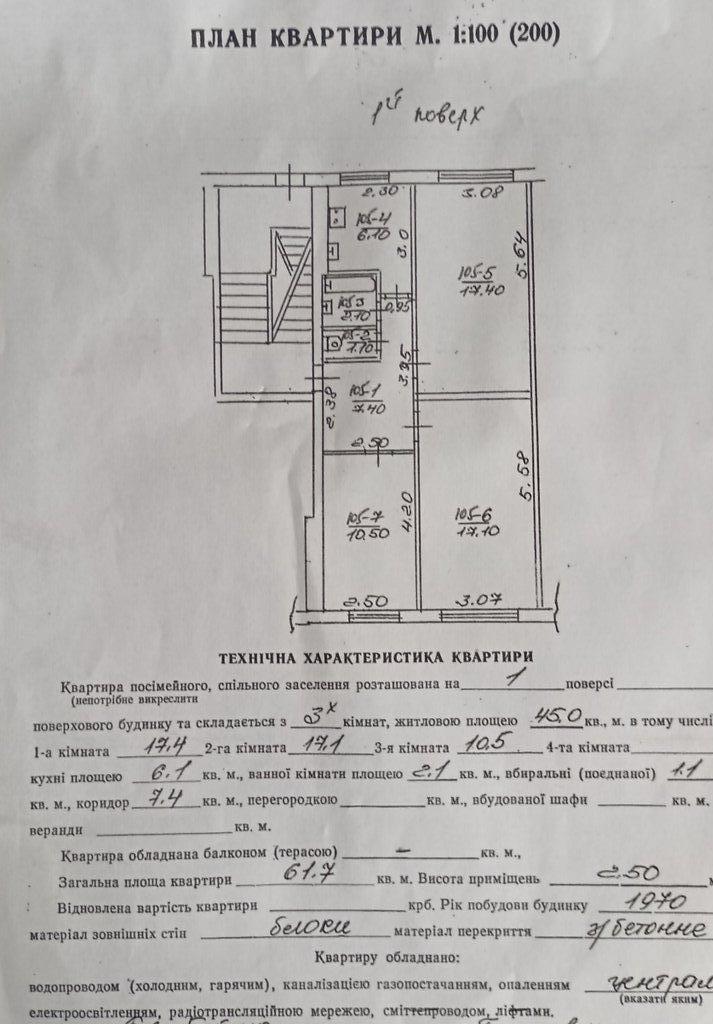 ПЛАН КВАРТИРИ М. 1:100 (200)
1й поверх
2.30 3.08
105-4
6.10
3.0
5.64
105-5
17.40
105-3
2.10
0,95
105-2
1.10
3.95
2.38
105-1
7.40
2.50
5.58
4.20
105-7
10.50
105-6
17.10
2.50 3.07
ТЕХНІЧНА ХАРАКТЕРИСТИКА КВАРТИРИ
Квартира посімейного, спільного заселення розташована на 1 поверсі
(непотрібне викреслити
поверхового будинку та складається з 3х кімнат, житловою площею 45.0 кв., м. в тому числі
1-а кімната 17.4 2-га кімната 17.1 3-я кімната 10.5 4-та кімната
кухні площею 6.1 кв. м., ванної кімнати площею 2.1 кв. м., вбиральні (поєднаної) 1.1
кв. м., коридор 7.4 кв. м., перегородкою кв. м., вбудованої шафи кв. м.
веранди кв. м.
Квартира обладнана балконом (терасою) – кв. м.,
Загальна площа квартири 61.7 кв. м. Висота приміщень 2.50
Відновлена вартість квартири крб. Рік побудови будинку 1970
матеріал зовнішніх стін блоки матеріал перекриття з/бетонне
Квартиру обладнано:
водопроводом (холодним, гарячим), каналізацією газопостачанням, опаленням централ
(вказати яким)
електроосвітленням, радіотрансляційною мережею, сміттєпроводом, ліфтами.